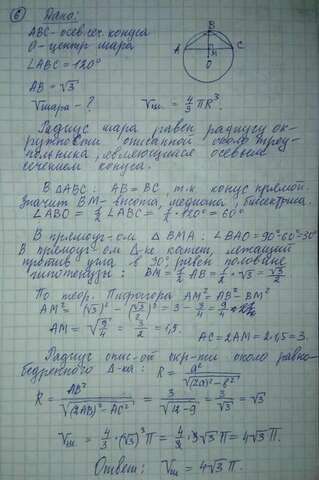 ⑥ Дано:
ABC - осев. сеч. конуса
O - центр шара
∠ABC = 120°
AB = √3
Vшара - ?
B
A M C
O
Vш. = 4/3 πR³.
Радиус шара равен радиусу ок-
ружности описанной около треу-
гольника, являющиеся осевым
сечением конуса.
В ΔABC: AB = BC, т.к. конус прямой.
Значит BM - высота, медиана, биссектриса.
∠ABO = 1/2 ∠ABC = 1/2 · 120° = 60°
В прямоуг-ом Δ BMA: ∠BAO = 90°-60° = 30°
В прямоуг-ом Δ-ке катет, лежащий
против угла в 30° равен половине
гипотенузы: BM = 1/2 AB = 1/2 · √3 = √3/2
По теор. Пифагора AM² = AB² - BM²
AM² = (√3)² - (√3/2)² = 3 - 3/4 = 9/4
AM = √9/4 = 3/2 = 1,5.
AC = 2AM = 2·1,5 = 3.
Радиус опис-ой окр-ти около равно-
бедренного Δ-ка: R = a²/√((2a)² - b²)
R = AB²/√((2AB)² - AC²) = 3/√(12-9) = 3/√3 = √3
Vш. = 4/3 · (√3)³ π = 4/3 · 3√3 π = 4√3 π.
Ответ: Vш = 4√3 π.